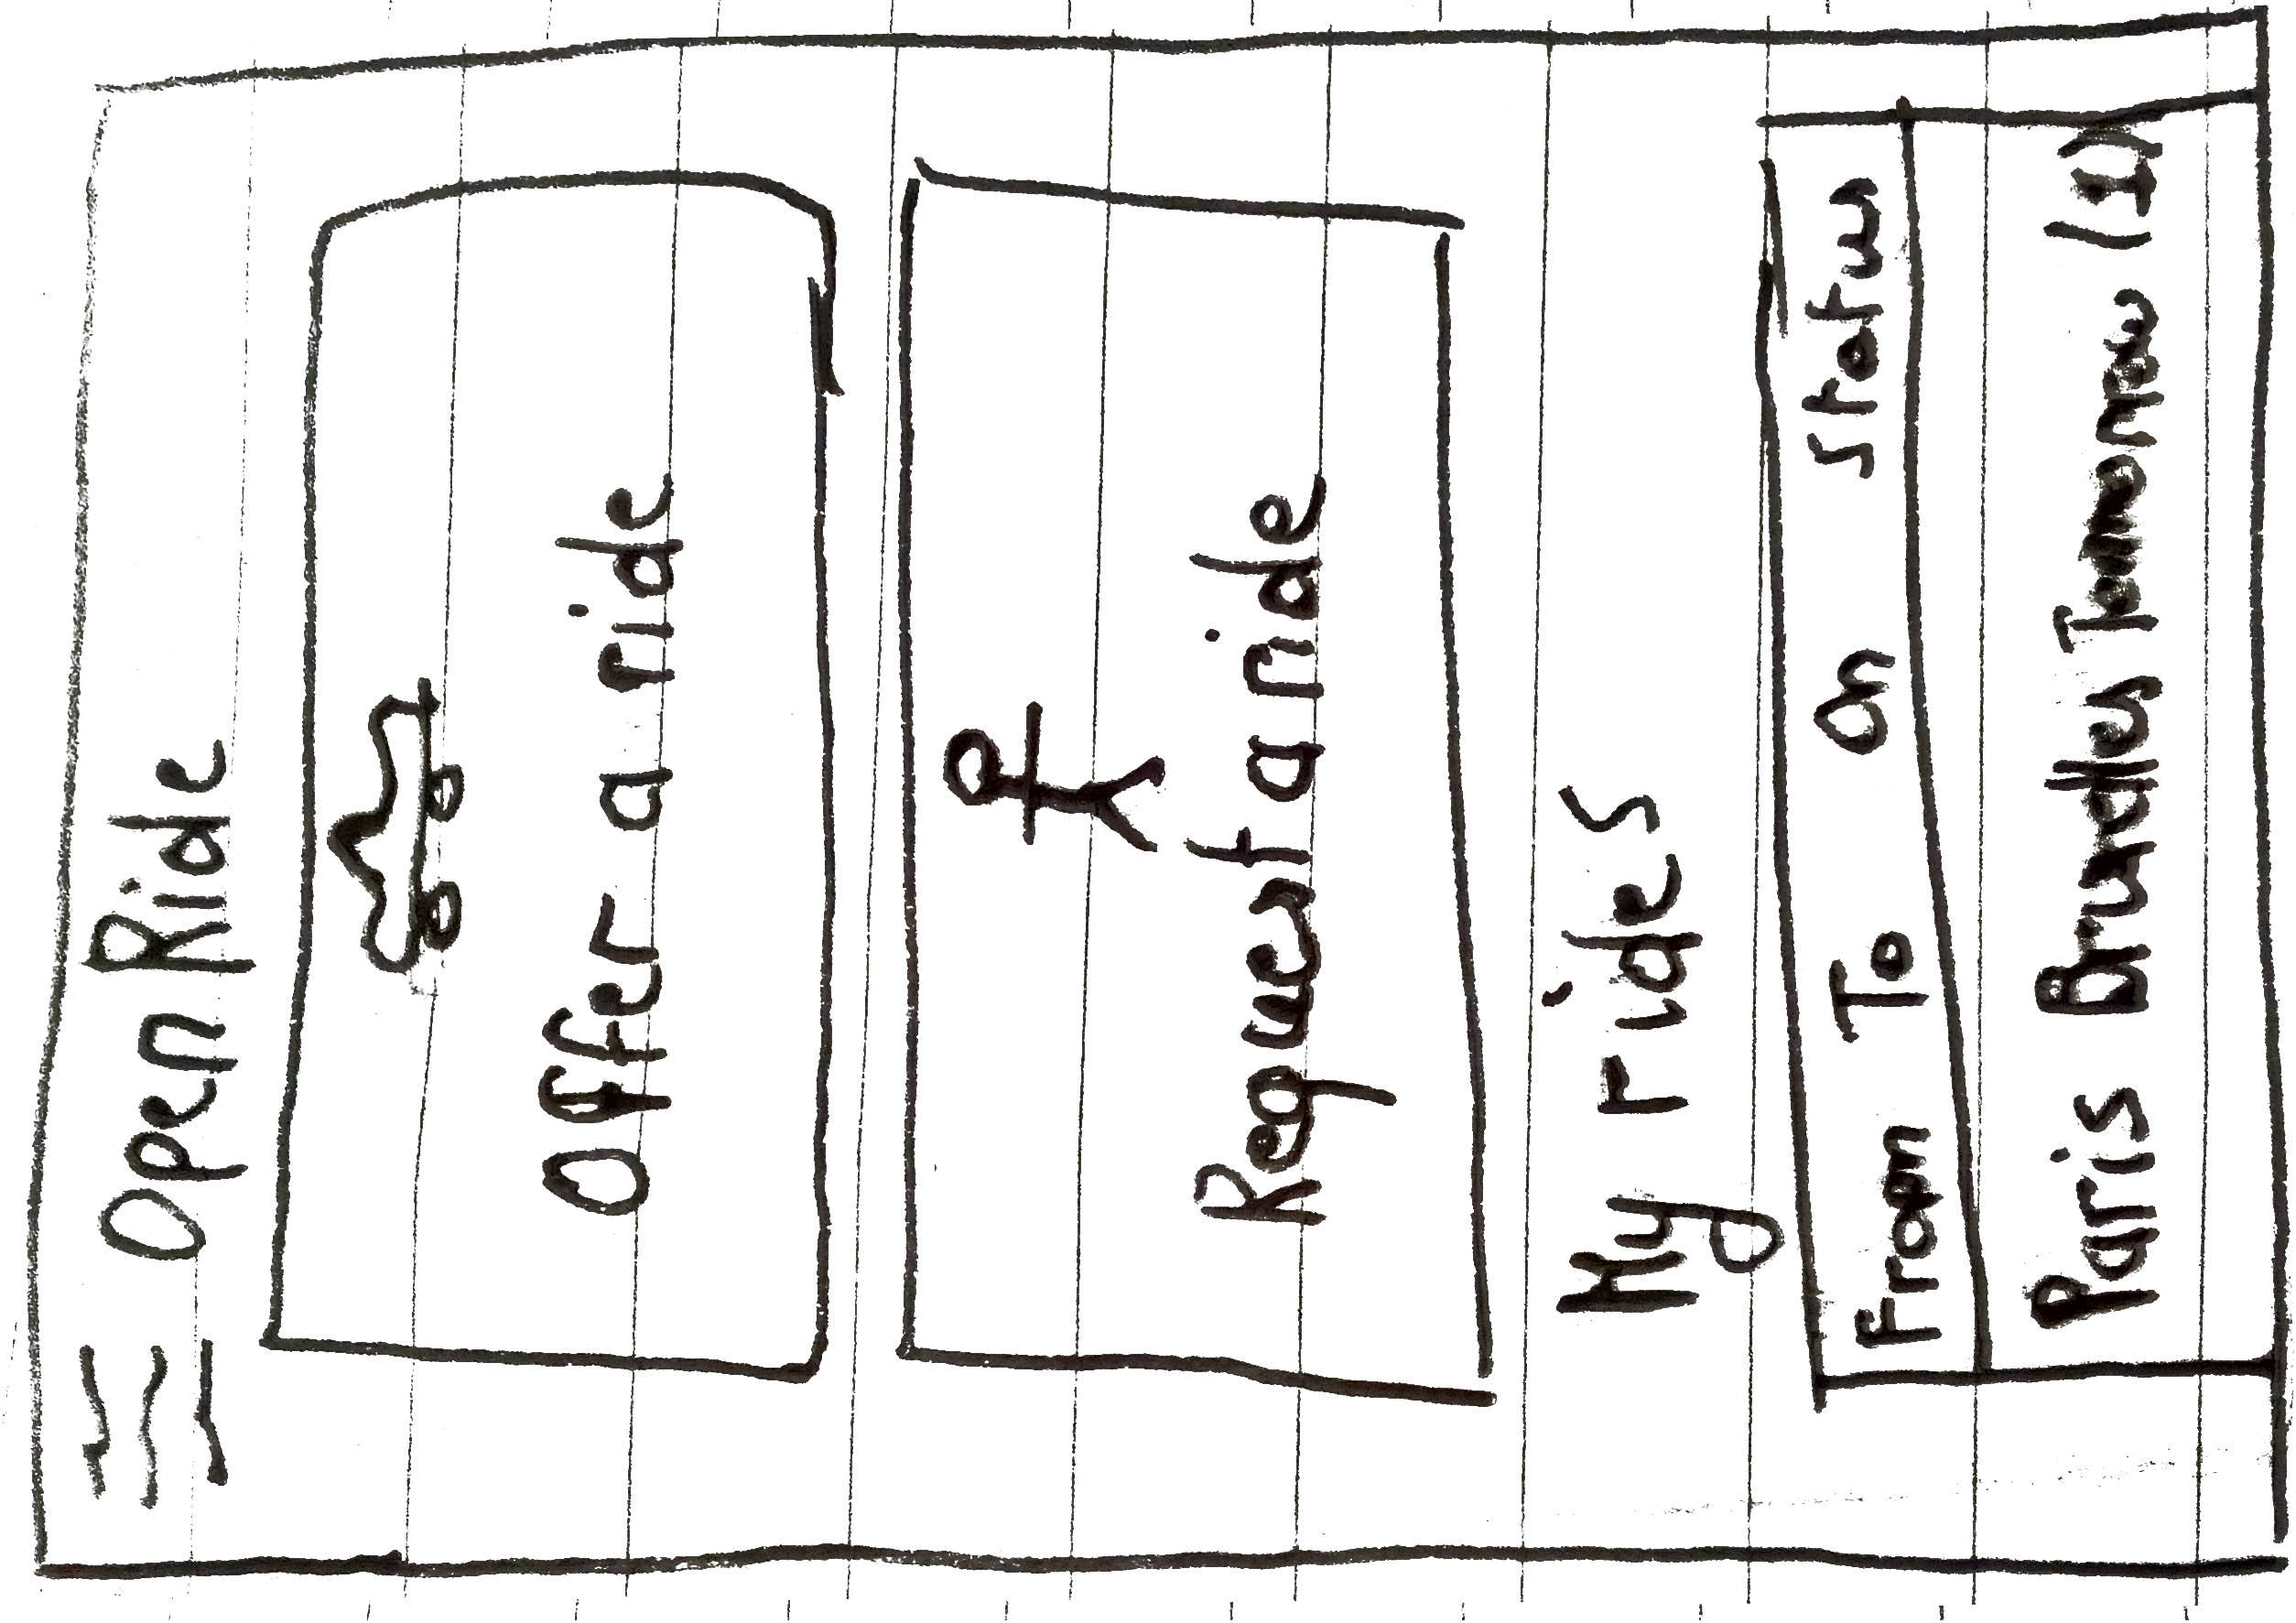 Open Ride
Offer a ride
Request a ride
My rides
From To On Status
Paris Bruxelles Tomorrow (1)